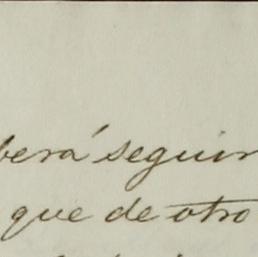 berá seguir
que de otro